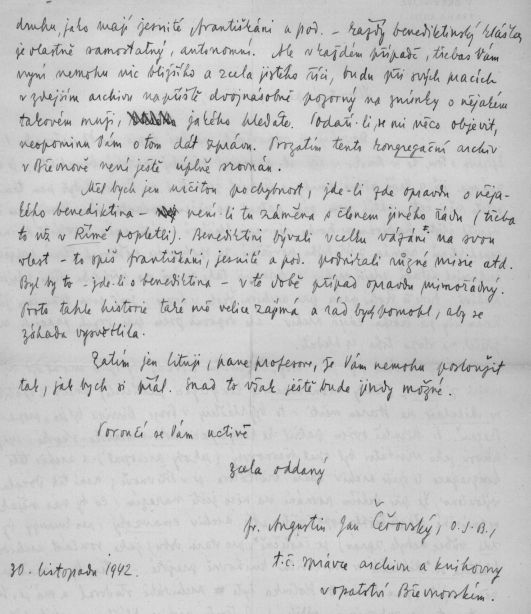 druhu, jako mají jesuité, františkáni a pod. - každý benediktinský klášter
je vlastně samostatný, autonomní. Ale v každém případě, třebas Vám
nyní nemohu nic bližšího a zcela jistého říci, budu při svých pracích
v zdejším archivu napříště dvojnásobně pozorný na zmínky o nějakém
takovém muži, jakého hledáte. Podaří-li se mi něco objeviti,
neopominu Vám o tom dát zprávu. Prozatím tento kongregační archiv
v Břevnově není ještě úplně srovnán.
Měl bych jen určitou pochybnost, jde-li zde opravdu o něja-
kého benediktina - není-li tu záměna s členem jiného řádu (třeba
to už v Římě popletli). Benediktini bývali vcelku vázáni na svou
vlast - to spíš františkáni, jesuité a pod. podnikali různé misie atd.
Byl by to - jde-li o benediktina - v té době případ opravdu mimořádný.
Proto tahle historie také mě velice zajímá a rád bych pomohl, aby se
záhada vysvětlila.
Zatím jen lituji, pane profesore, že Vám nemohu posloužit
tak, jak bych si přál. Snad to však ještě bude jindy možné.
Poroučí se Vám uctivě
zcela oddaný
fr. Augustin Jan Čeřovský, O.S.B.,
t.č. správce archivu a knihovny
v opatství Břevnovském.
30. listopadu 1942.